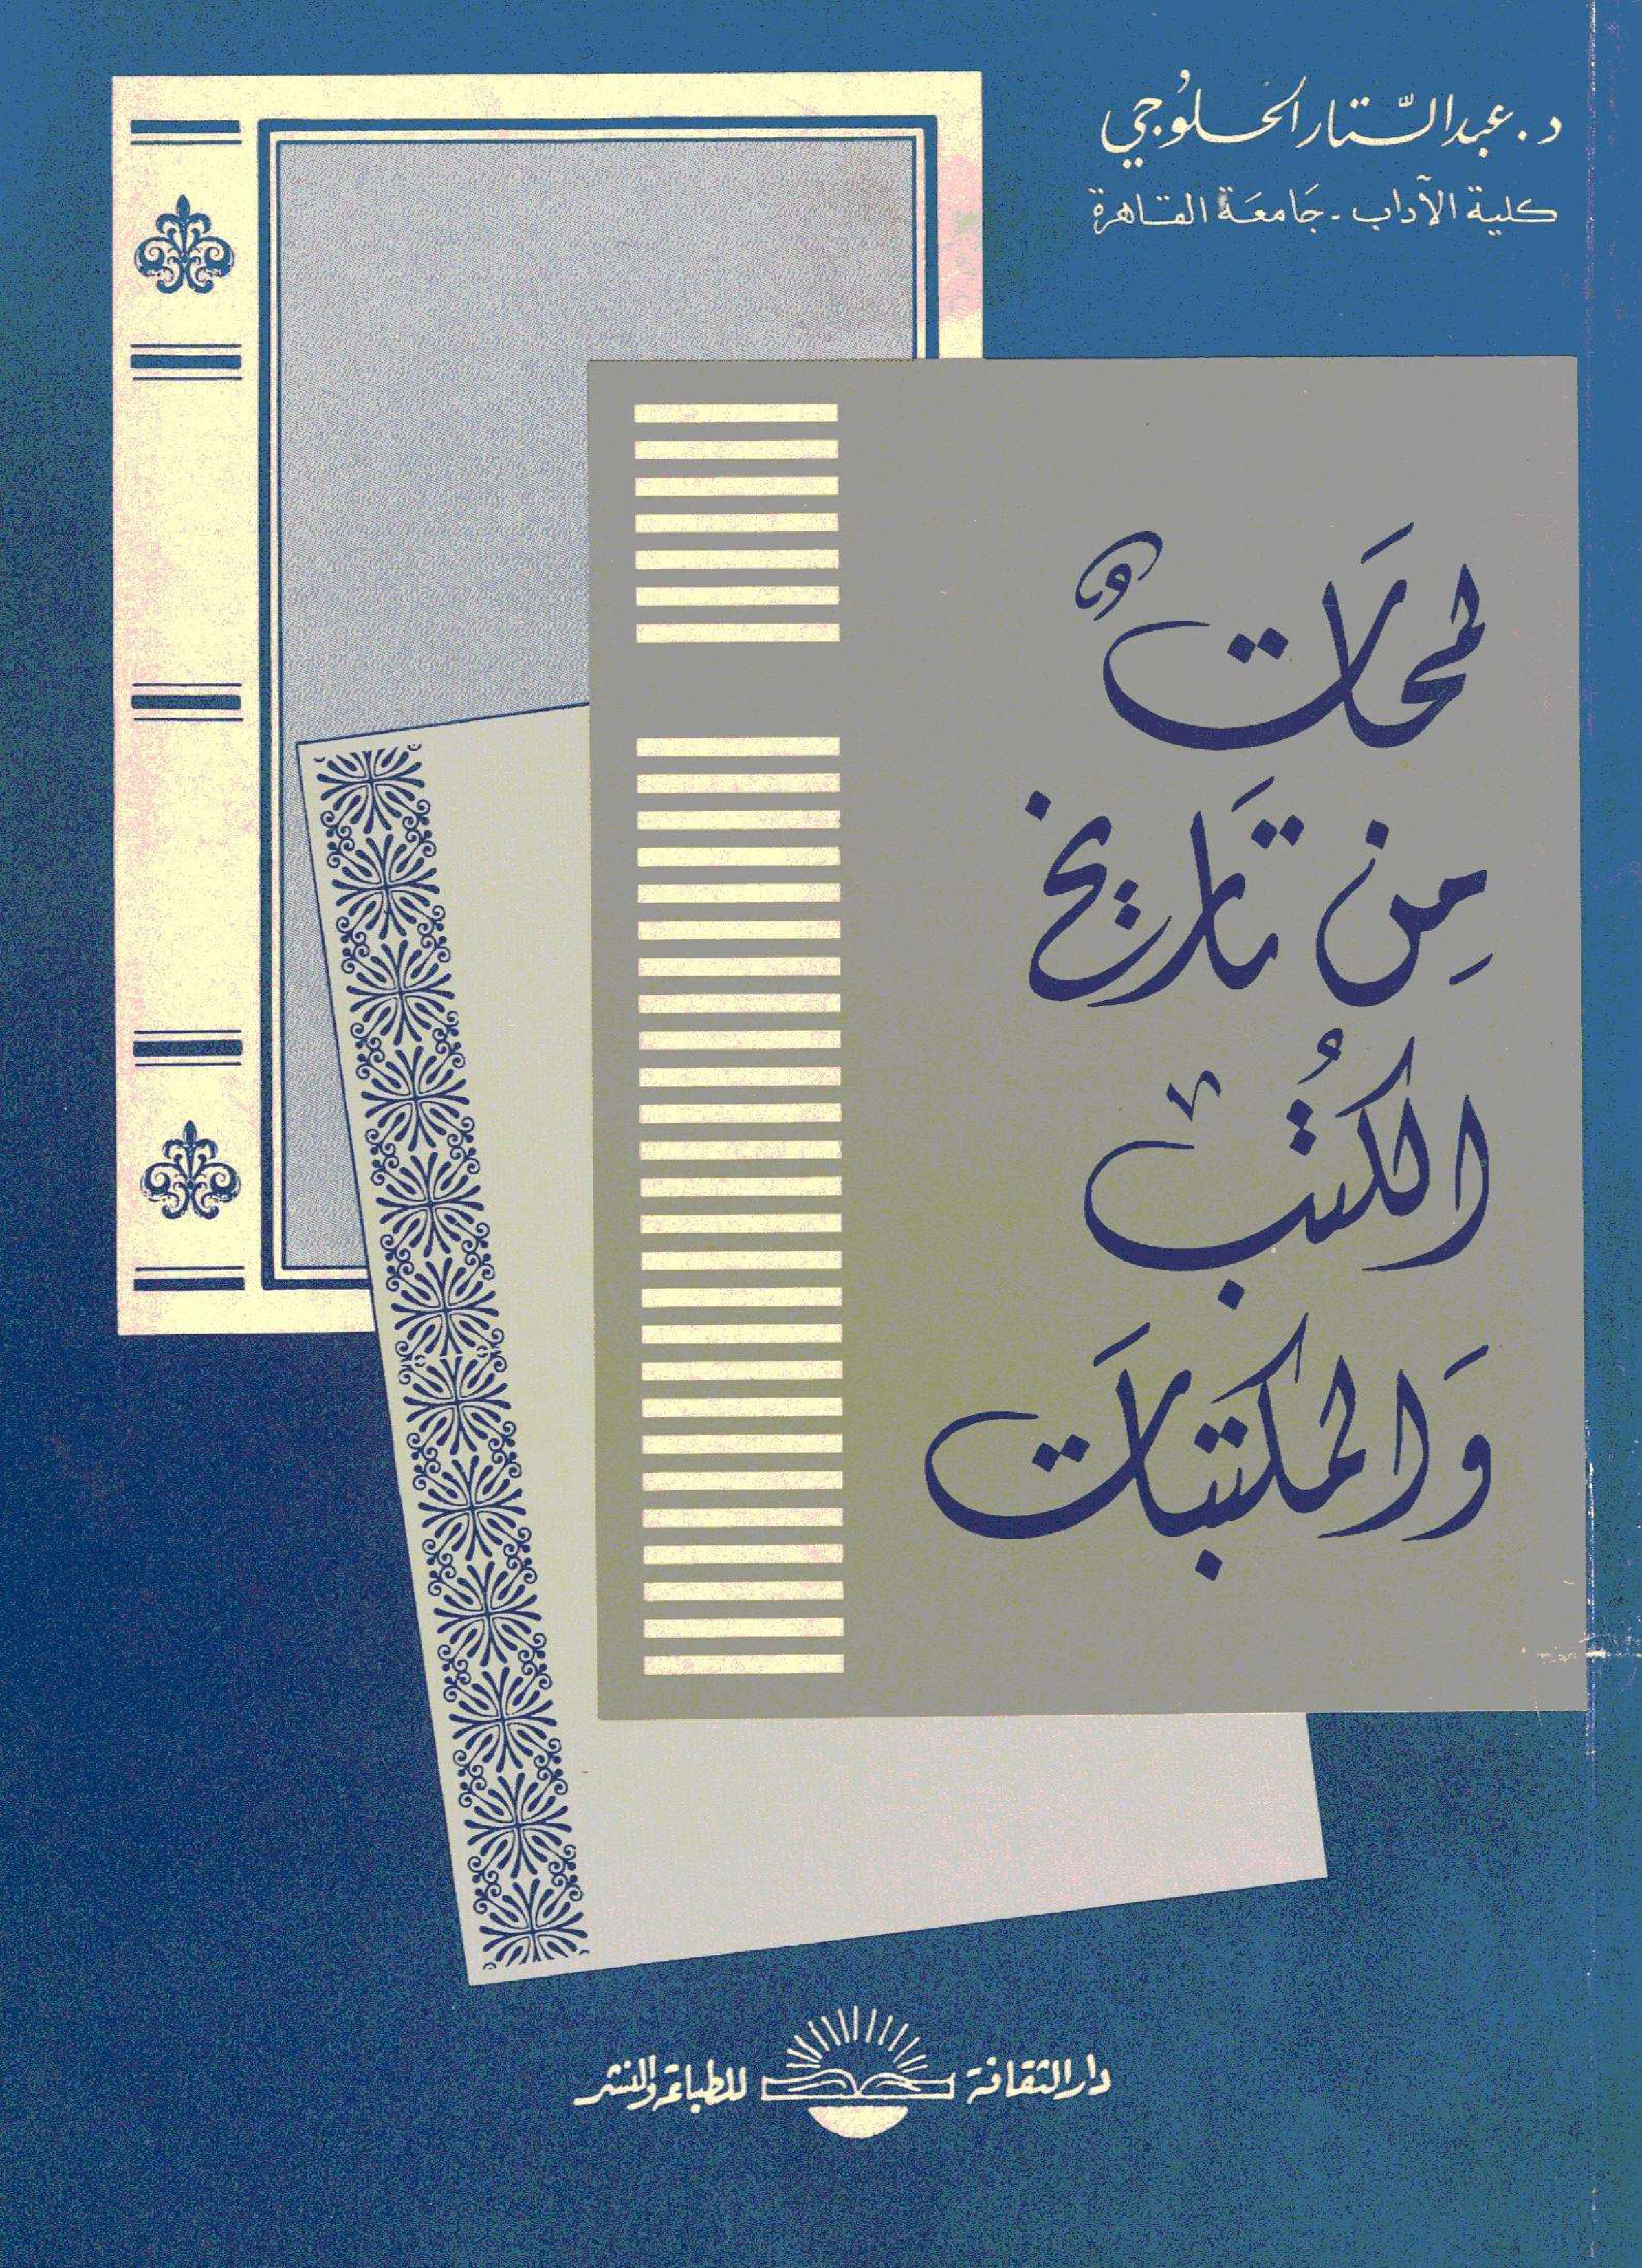 د. عبد الستّار الحلوُجي
كلية الآداب - جَامعَة القاهرة
لمحَاتٌ
مِن تَاريخ
الكتُب
وَالمكتبَات
دار الثقافة للطباعة والنشر